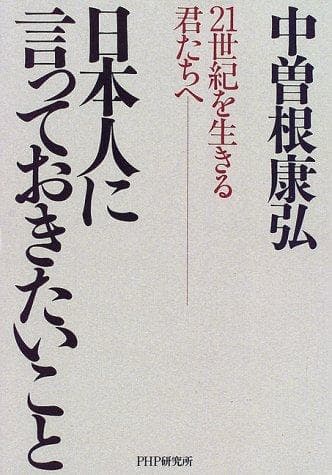 中曽根康弘
21世紀を生きる
君たちへ
日本人に
言っておきたいこと
PHP研究所